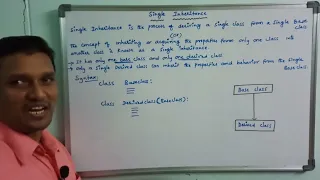 Single Inheritance
Single Inheritance is the process of deriving a single class from a single Base class
(or)
The concept of inheriting or acquiring the properties from only one class into
another class is known as a single inheritance.
→ It has only one base class and only one derived class
→ Only a single derived class can inherit the properties and behavior from the single Base class.
Syntax:
Class Baseclass:
Class Derivedclass(Baseclass):
Base class
Derived class